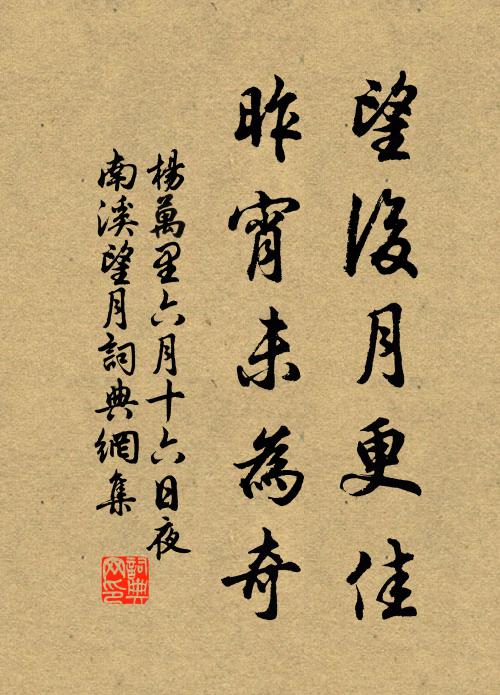 望後月更佳
昨宵未為奇
楊萬里六月十六日夜
南溪望月詞典網集
詞典网印